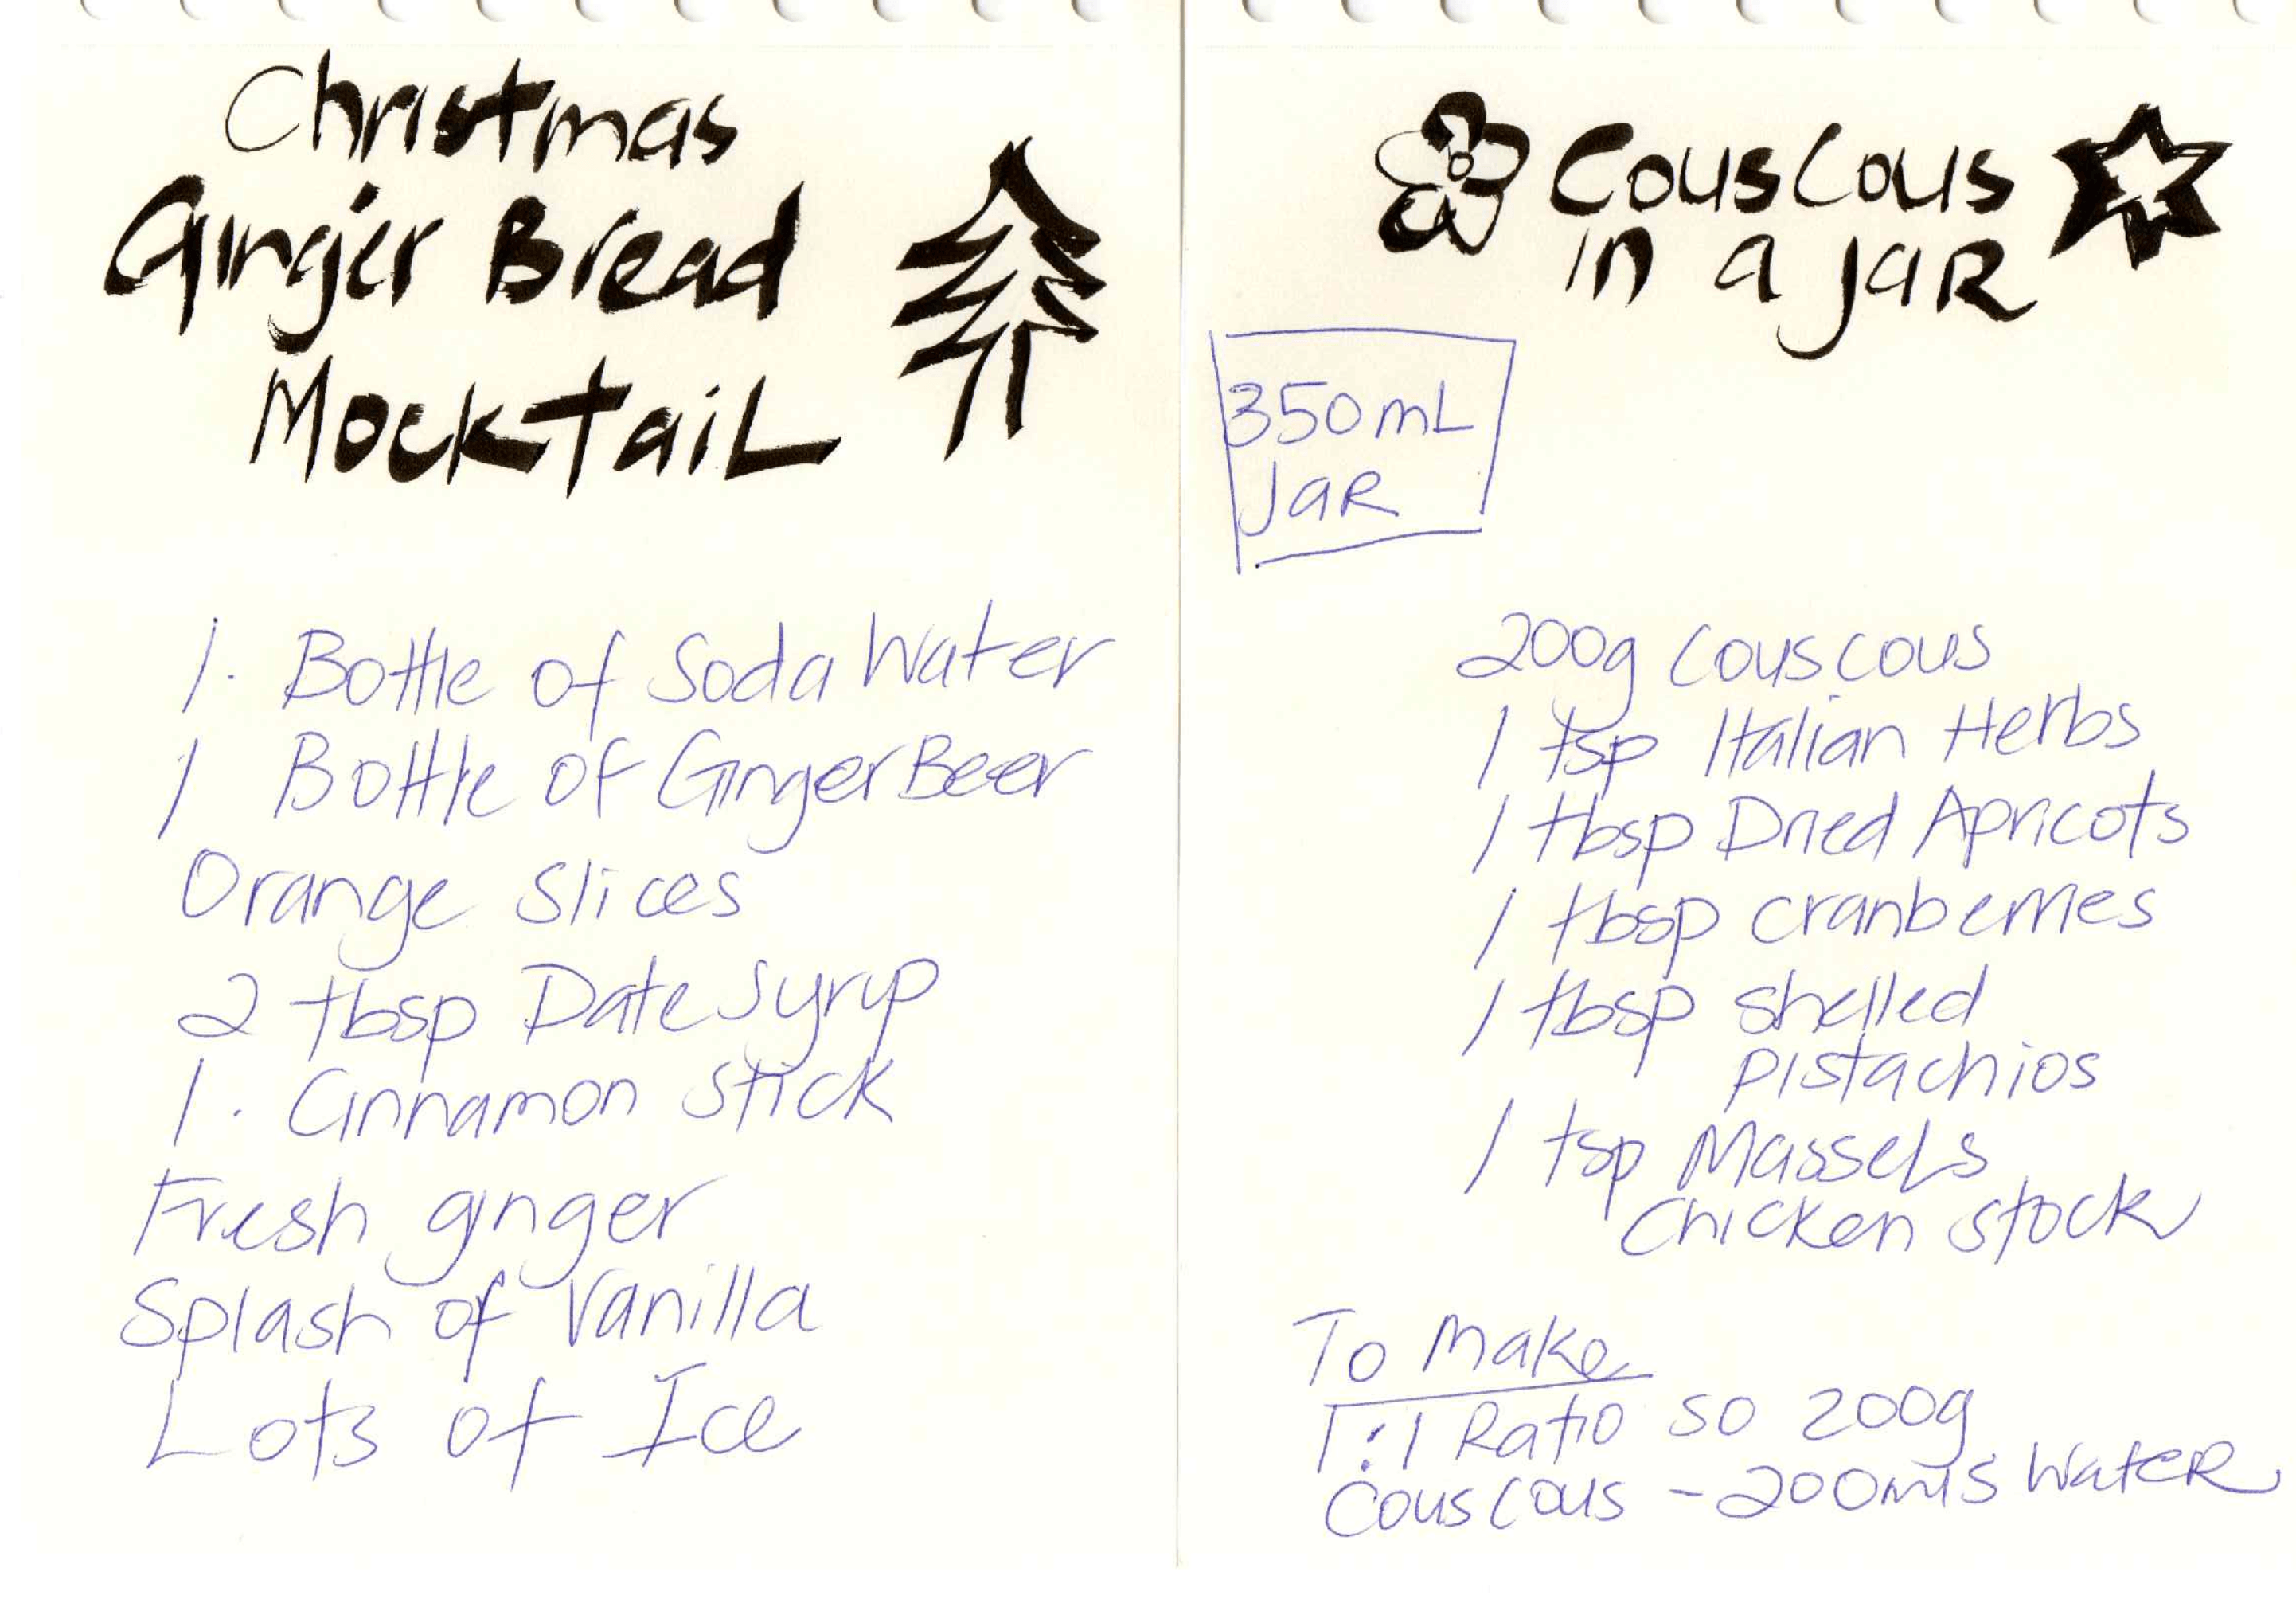 Christmas
Ginger Bread
Mocktail
1. Bottle of Soda Water
1 Bottle of Ginger Beer
Orange Slices
2 tbsp Date Syrup
1. Cinnamon Stick
Fresh ginger
Splash of Vanilla
Lots of Ice
Couscous
in a jar
350mL
Jar
200g Couscous
1 tsp Italian Herbs
1 tbsp Dried Apricots
1 tbsp cranberries
1 tbsp shelled
pistachios
1 tsp Massels
Chicken stock
To Make
1:1 Ratio so 200g
Couscous - 200mls Water